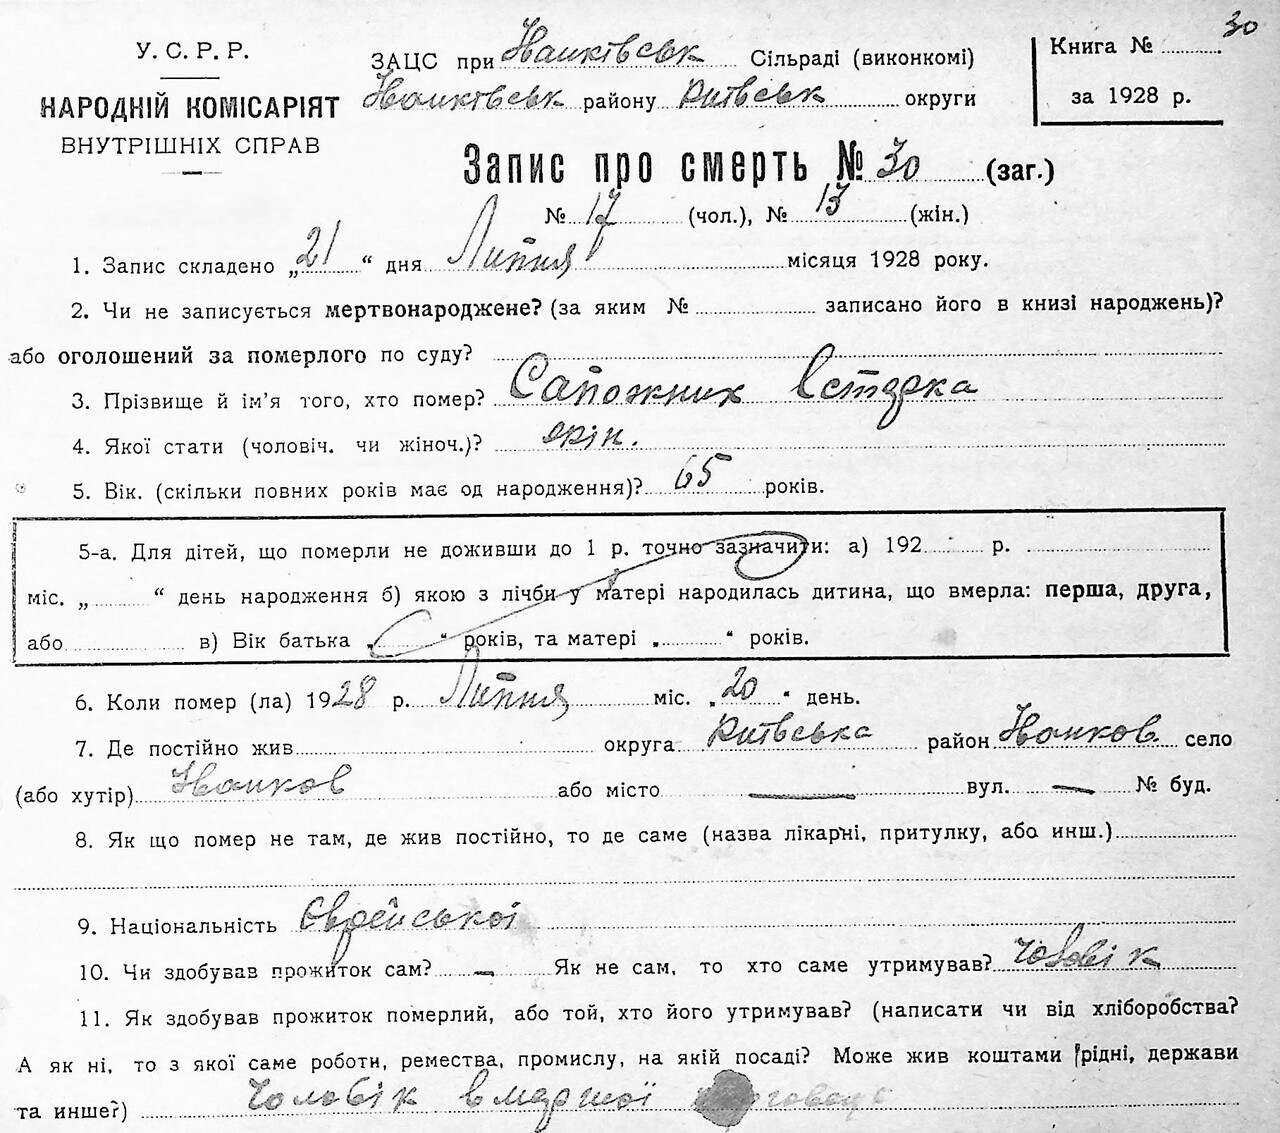 30
У. С. Р. Р.
НАРОДНІЙ КОМІСАРІЯТ
ВНУТРІШНІХ СПРАВ
ЗАЦС при Іванківськ Сільраді (виконкомі)
Іванківськ району Київськ округи
Книга №
за 1928 р.
Запис про смерть № 30 (заг.)
№ 17 (чол.), № 13 (жін.)
1. Запис складено „21“ дня Липня місяця 1928 року.
2. Чи не записується мертвонароджене? (за яким № записано його в книзі народжень)?
або оголошений за померлого по суду?
3. Прізвище й ім'я того, хто помер? Сапожник Естерка
4. Якої стати (чоловіч. чи жіноч.)? жін.
5. Вік. (скільки повних років має од народження)? 65 років.
5-а. Для дітей, що померли не доживши до 1 р. точно зазначити: а) 192 р.
міс. „ “ день народження б) якою з лічби у матері народилась дитина, що вмерла: перша, друга,
або в) Вік батька „ “ років, та матері „ “ років.
6. Коли помер (ла) 1928 р. Липня міс. „20“ день.
7. Де постійно жив округа Київська район Іванков. село
(або хутір) Іванков або місто — вул. — № буд.
8. Як що помер не там, де жив постійно, то де саме (назва лікарні, притулку, або инш.)
9. Національність Єврейської
10. Чи здобував прожиток сам? — Як не сам, то хто саме утримував? чоловік
11. Як здобував прожиток померлий, або той, хто його утримував? (написати чи від хліборобства?
А як ні, то з якої саме роботи, ремества, промислу, на якій посаді? Може жив коштами рідні, держави
та инше?) Чоловік вмершої